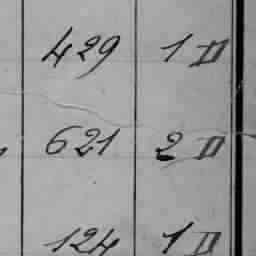 429 1 II
621 2 II
124 1 II